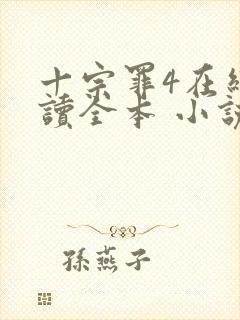 十宗罪4在線
讀全本 小說
孫燕子